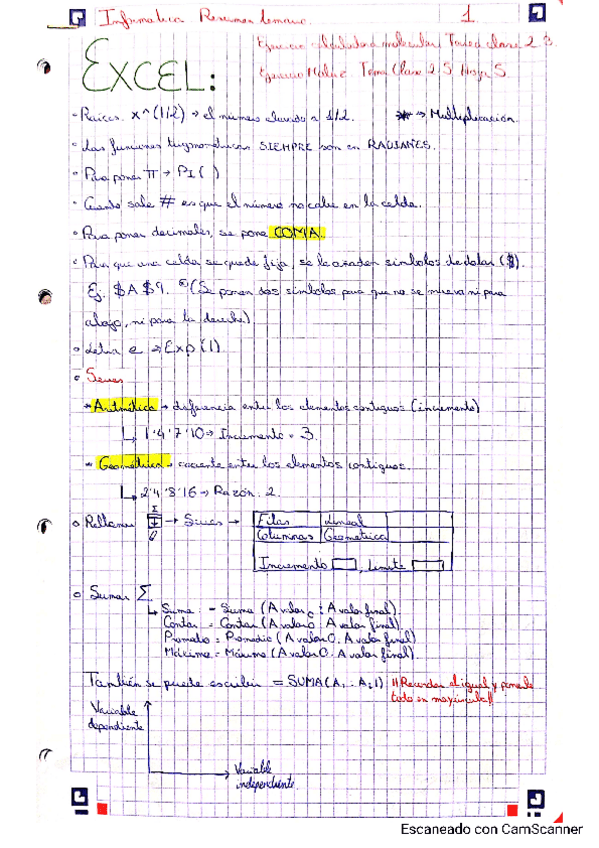 Informática Resumen temario. 1
Ejercicio calculadora molecular Tarea clase 2.3.
Ejercicio Matriz Tema Clase 2.5 Hoja 5.
EXCEL:
• Raíces. x^(1/2) → el número elevado a 1/2. * → Multiplicación.
• Las funciones trigonométricas SIEMPRE son en RADIANES.
• Para poner π → PI( )
• Cuando sale # es que el número no cabe en la celda.
• Para poner decimales, se pone COMA.
• Para que una celda se quede fija, se le añaden símbolos de dolar ($).
Ej: $A$9. (Se ponen dos símbolos para que no se mueva ni para
abajo, ni para la derecha)
• Letra e → Exp(1)
• Series
* Aritmética → diferencia entre los elementos contiguos (incremento)
↳ 1·4·7·10 → Incremento = 3.
* Geométrica → cociente entre los elementos contiguos.
↳ 2·4·8·16 → Razón: 2.
• Rellenar → Series → Filas Lineal
Columnas Geométrica
Incremento , Límite
• Sumar Σ
↳ Suma = Suma (A valor 0 : A valor final)
Contar = Contar (A valor 0 : A valor final)
Promedio = Promedio (A valor 0 : A valor final)
Máximo = Máximo (A valor 0 : A valor final).
También se puede escribir = SUMA(A1 : A21) !!Recordar el igual y ponerlo
todo en mayúscula!!
Variable
dependiente
Variable
independiente.
Escaneado con CamScanner